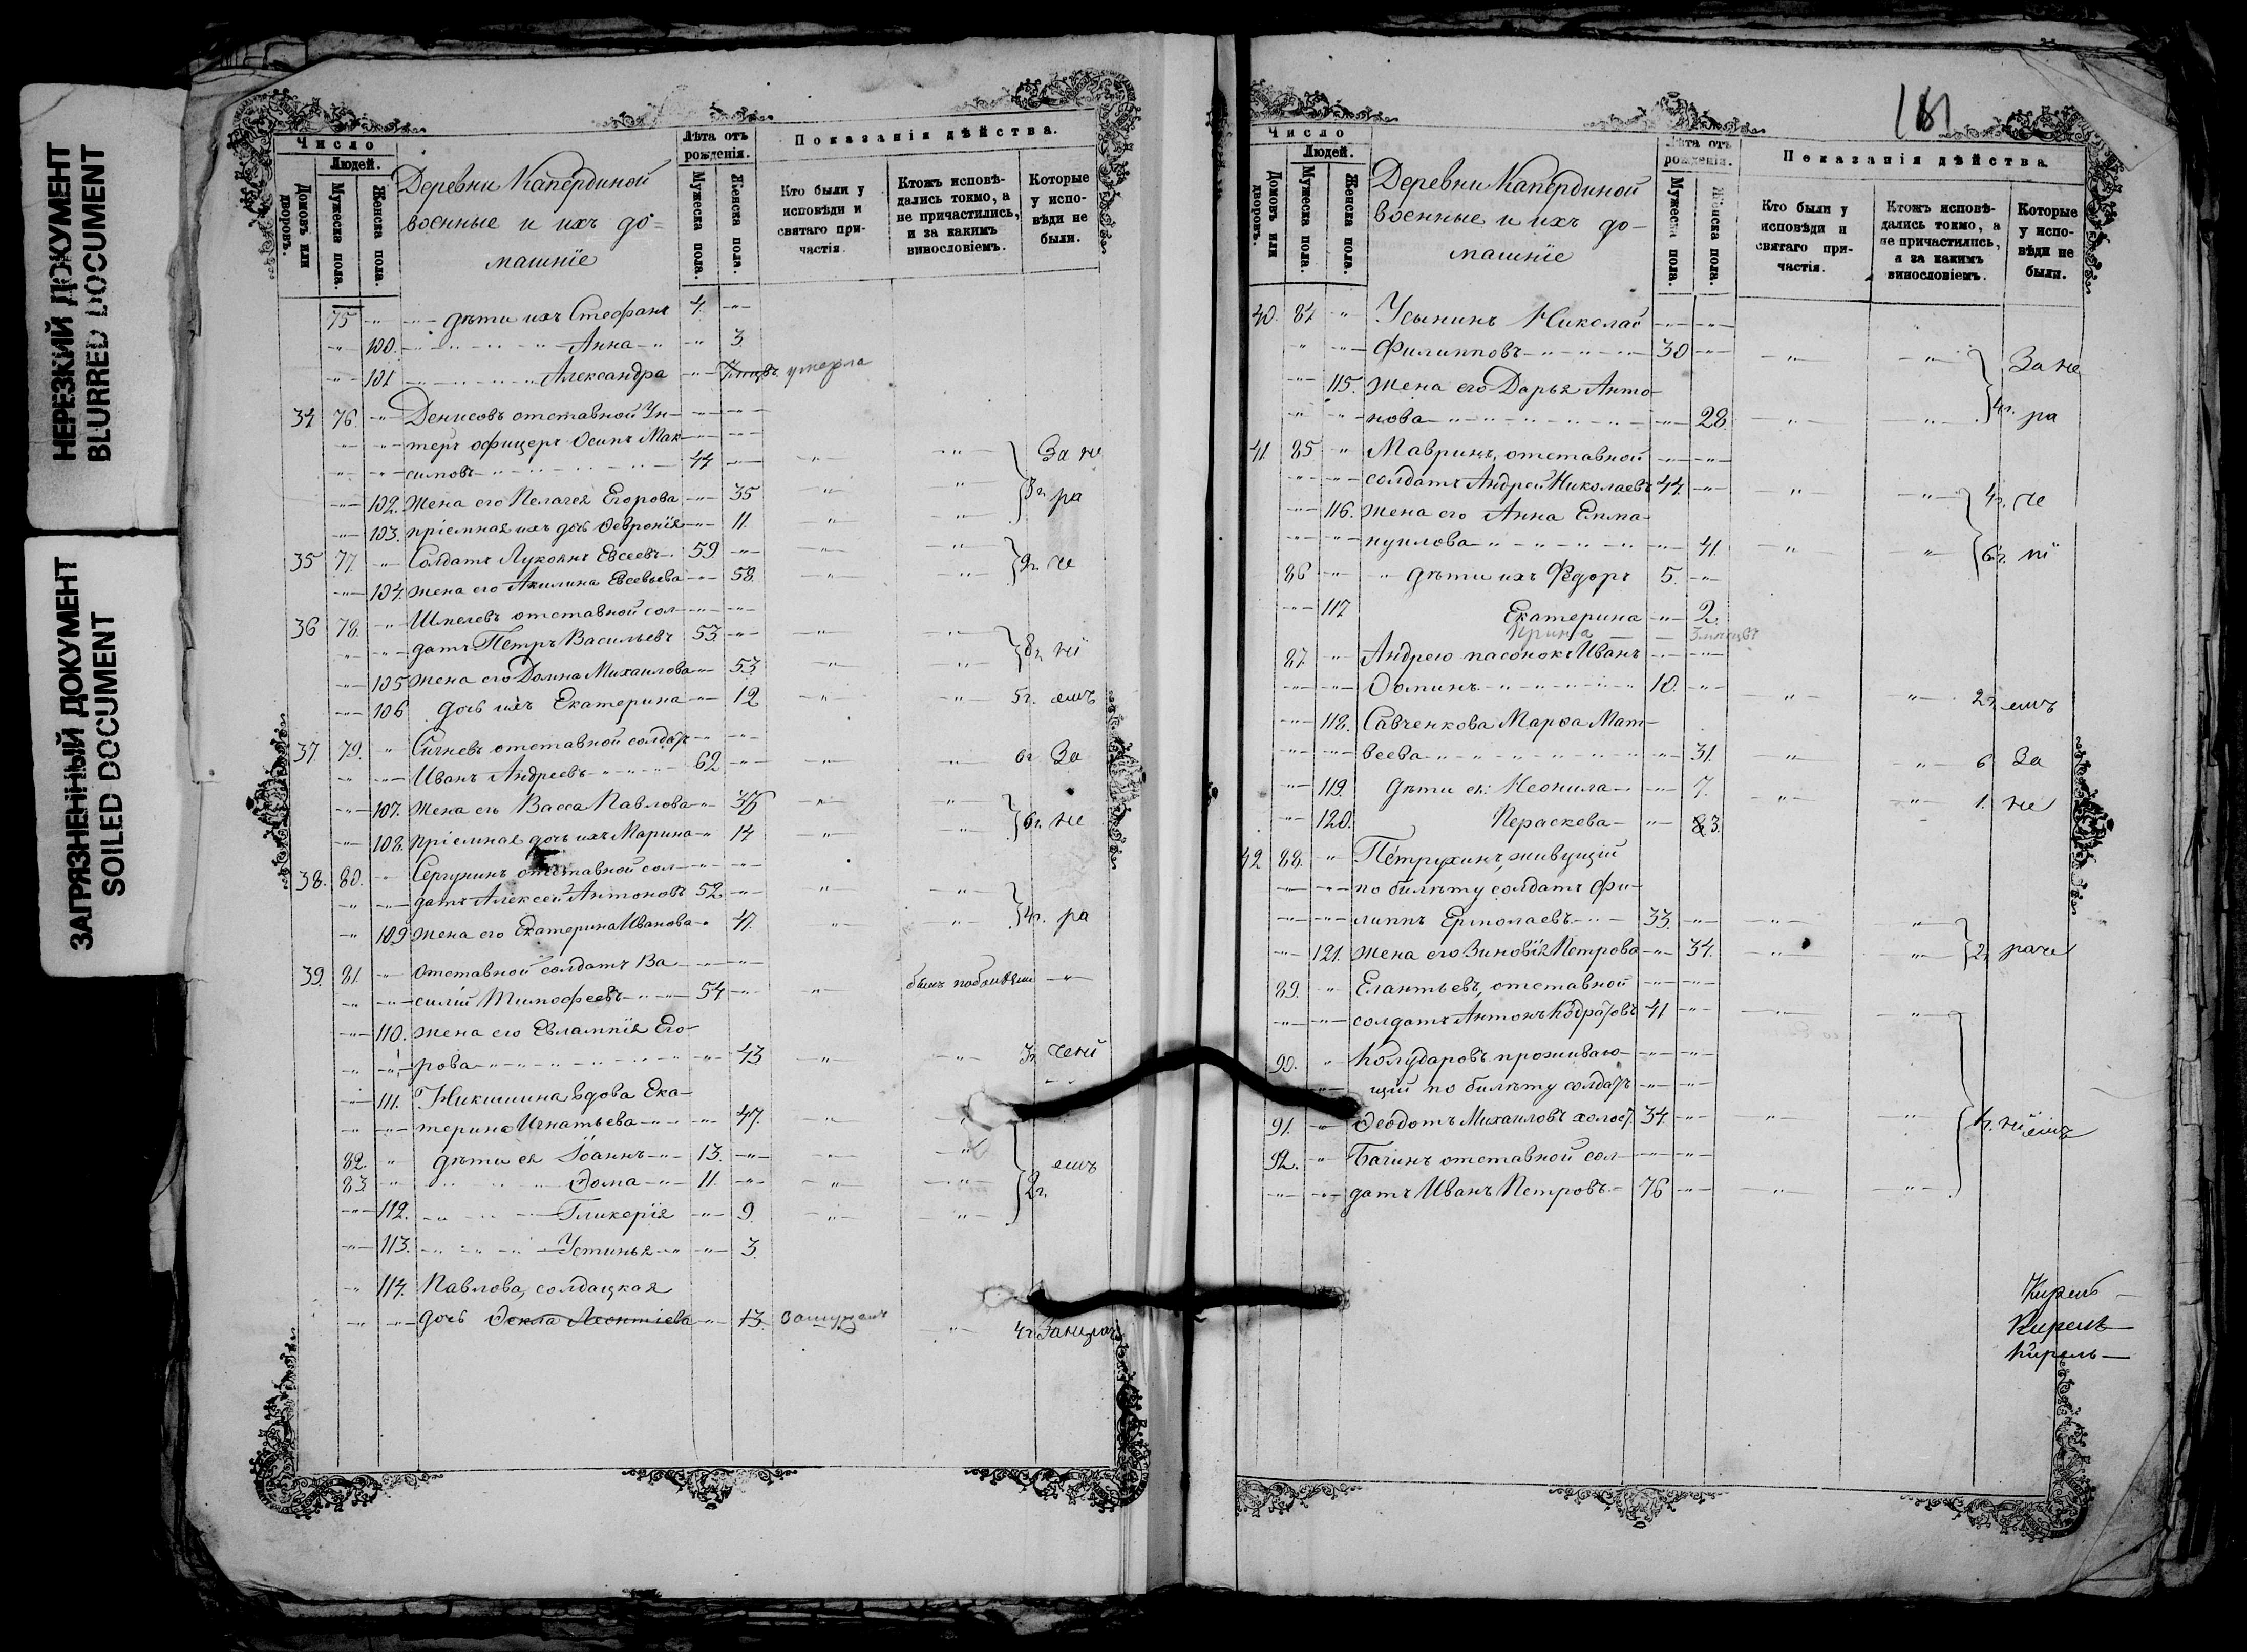 НЕРЕЗКИЙ ДОКУМЕНТ
BLURRED DOCUMENT
ЗАГРЯЗНЕННЫЙ ДОКУМЕНТ
SOILED DOCUMENT
Число
Людей.
Домовъ или дворовъ.
Мужеска пола.
Женска пола.
Деревни Капердиной
военные и ихъ до=
машнїе
Лѣта отъ рожденія.
Мужеска пола.
Женска пола.
Показанія дѣйства.
Кто были у исповѣди и святаго причастія.
Ктожъ исповѣдались токмо, а не причастились, и за какимъ винословіемъ.
Которые у исповѣди не были.
75 дѣти ихъ Стефанъ 4.
100. Анна 3
101 Александра умерла
34 76. Денисовъ отставной Ун-
теръ офицеръ Осипъ Мак-
симовъ 44 За не
102. жена его Пелагея Егорова 35 3г. ра
103. прїемная их дочь Февронїя 11.
35 77 Солдатъ Лукоянъ Евсеевъ 59
104. жена его Акилина Евсевьева 58. че
36 78. Шпелевъ отставной сол-
датъ Петръ Васильевъ 53
105 жена его Домна Михаилова 53 нї
106 дочь ихъ Екатерина 12 5г. емъ
37 79. отставной солдатъ
Иванъ Андреевъ 62 6г За
107. жена его Васса Павлова
108. прїемная дочь ихъ Марина 14 6г. не
38. 80. Сергунинъ отставной сол-
датъ Алексей Антоновъ 52
109 жена его Екатерина Иванова 47. 4г. ра
39. 81 Отставной солдатъ Ва-
силїй Тимофеевъ 54
110. жена его Евлампїя Его-
рова 43 3г. ченї
111. Никишина вдова Ека-
терина Игнатьева 47.
82. дѣти ея Іоаннъ 13. емъ
83. Ѳома 11. 2г.
112. Гликерїя 9.
113. Устинья 3.
114. Павлова, солдацкая
дочь Ѳекла Леонтїева 13.
181
Число
Людей.
Домовъ или дворовъ.
Мужеска пола.
Женска пола.
Деревни Капердиной
военные и ихъ до-
машнїе
Лѣта отъ рожденія.
Мужеска пола.
Женска пола.
Показанія дѣйства.
Кто были у исповѣди и святаго причастія.
Ктожъ исповѣдались токмо, а не причастились, и за какимъ винословіемъ.
Которые у исповѣди не были.
40. 84 Усынинъ Николай
Филипповъ 30 За не
115. жена его Дарья Анто-
нова 28. 4г. ра
41. 85 Мавринъ, отставной
солдатъ Андрей Николаевъ 44. 4г. че
116. жена его Анна Емма-
нуилова 41. 6г. нї
86 дѣти ихъ Ѳедоръ 5.
117 Екатерина 2.
Ирина
87. Андрею пасонокъ Иванъ
Ѳоминъ 10. 2г. емъ
118. Савченкова Марѳа Мат-
веева 31. 6 За
119. дѣти ея: Неонила 7. 1. не
120. Параскева 3.
42 88. Петрухинъ, живущїй
по билѣту солдатъ Фи-
липпъ Ермолаевъ 33.
121. жена его Зиновїя Петрова 34. 2г. раче
89. Елантьевъ, отставной
солдатъ Антонъ 41
90. Колударовъ проживаю-
щїй по билѣту солдатъ
91. Ѳеодотъ Михаиловъ холост. 34. нїемъ
92. Багинъ отставной сол-
датъ Иванъ Петровъ 76